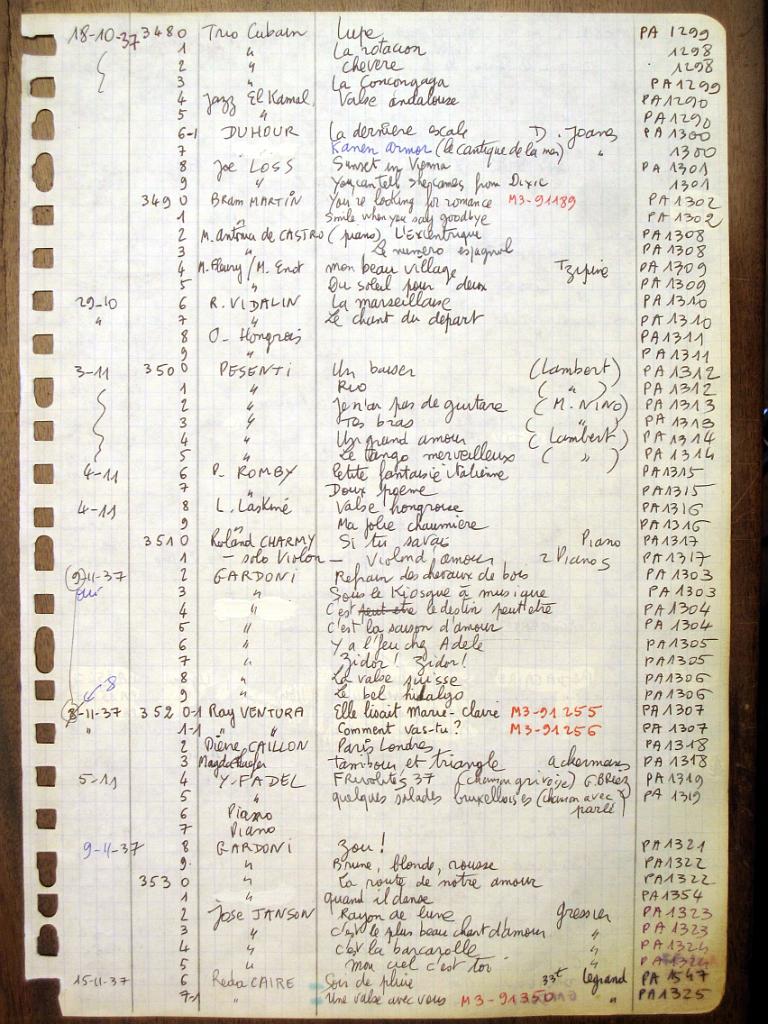 18-10-37 3480 Trio Cubain Lupe PA 1299
1 " La rotacion 1298
2 " chevere 1298
3 " La Concongaga PA1299
4 Jazz El Kamal Valse andalouse PA1290
5 " PA1290
6-1 DUHOUR La dernière escale D. Joanes PA1300
7 Kanen armor (le cantique de la mer) " 1300
8 Joe LOSS Sunset in Vienna PA 1301
9 " You can tell she comes from Dixie 1301
3490 Bram MARTIN You're looking for romance M3-91189 PA1302
1 " Smile when you say goodbye PA1302
2 M. antonia de CASTRO (piano) L'Excentrique PA1308
3 " Le numero espagnol PA1308
4 M. Fleury / M. Enot mon beau village PA1309
5 " Du soleil pour deux PA1309
29-10 6 R. VIDALIN La marseillaise PA1310
" 7 " Le chant du depart PA1310
8 O- Hongrois PA1311
9 " PA1311
3-11 3500 PESENTI Un baiser (Lambert) PA1312
1 " Rio ( " ) PA1312
2 " Je n'ai pas de guitare (M. NINO) PA1313
3 " Tes bras ( " ) PA1313
4 " Un grand amour (Lambert) PA1314
5 " Le tango merveilleux ( " ) PA1314
4-11 6 P. ROMBY Petite fantaisie italienne PA1315
7 " Doux poeme PA1315
4-11 8 L. Laskiné Valse hongroise PA1316
9 " Ma jolie chaumière PA1316
3510 Roland CHARMY Si tu savais Piano PA1317
1 - solo Violon - Violond'amour 2 Pianos PA1317
9-11-37 2 GARDONI Refrain des chevaux de bois PA1303
3 " Sous le Kiosque à musique PA1303
4 " C'est peut etre le destin peut etre PA1304
5 " c'est la saison d'amour PA1304
6 " Y a l'feu chez Adele PA1305
7 " Zidor! Zidor! PA1305
8 " La valse suisse PA1306
8 9 " Le bel hidalgo PA1306
8-11-37 3520-1 Ray VENTURA Elle lisait Marie-Claire M3-91255 PA1307
" 1-1 " " Comment vas-tu? M3-91256 PA1307
2 Pierre CAILLON Paris Londres PA1318
3 tambour et triangle ackermans PA1318
5-11 4 Y. FADEL Frivolités 37 (chanson grivoise) G. BRIEZ PA1319
5 " quelques salades bruxelloises (chanson avec parlé) PA 1319
6 Piano
7 Piano
9-11-37 8 GARDONI Zou! PA1321
9 " Brune, blonde, rousse PA1322
3530 " La route de notre amour PA1322
1 " quand il danse PA1354
2 Jose JANSON Rayon de lune gressier PA1323
3 " c'est le plus beau chant d'amour " PA1323
4 " c'est la barcarolle " PA1324
5 " mon ciel c'est toi " PA1324
15-11-37 6 Reda CAIRE Soir de pluie 33t Legrand PA 1547
7-1 " Une valse avec vous M3-91350 " PA1325